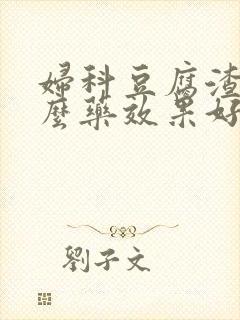 婦科豆腐渣
麼藥效果好
劉子文